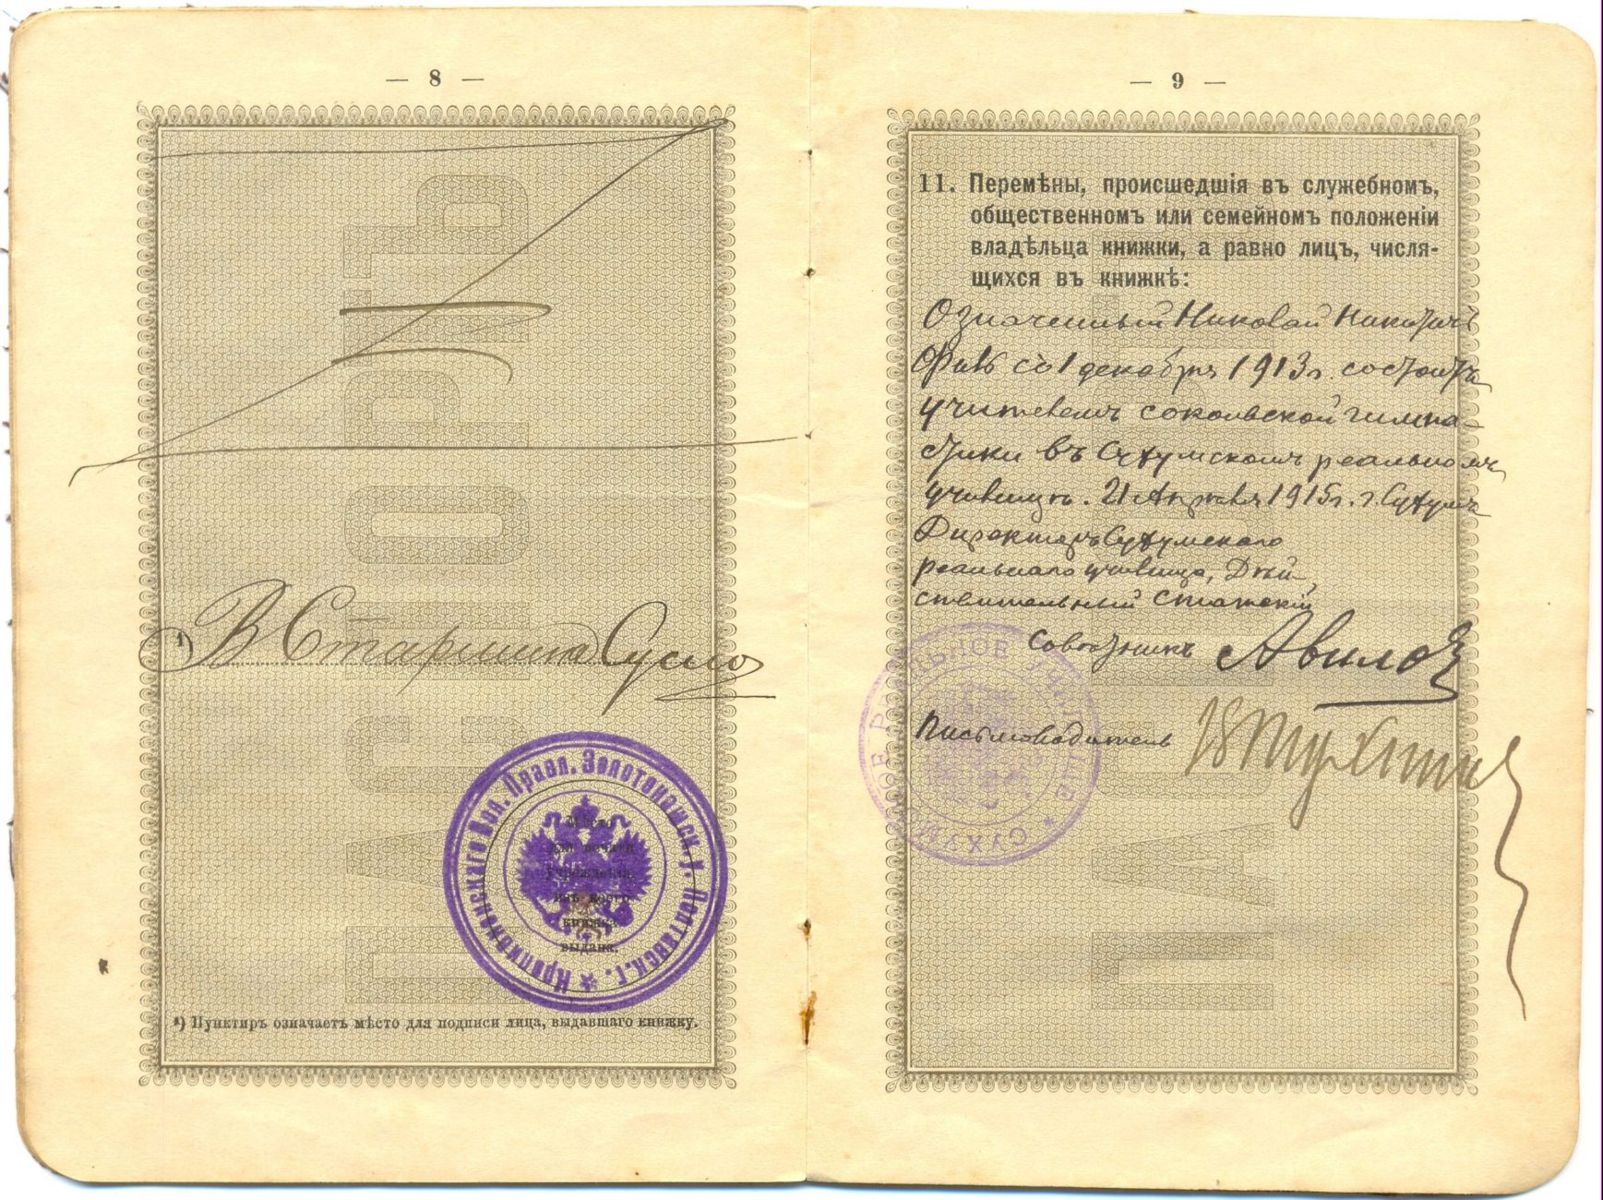 — 8 —
ПАСПОРТЪ
*) ВСтаршина Сусло
Кропивонскаго Вол. Правл. Золотоношск. у. Полтавск. г.
Мѣсто
для печати
учрежденія,
изъ коего
книжка
выдана.
*) Пунктиръ означаетъ мѣсто для подписи лица, выдавшаго книжку.
— 9 —
11. Перемѣны, происшедшія въ служебномъ,
общественномъ или семейномъ положеніи
владѣльца книжки, а равно лицъ, числя-
щихся въ книжкѣ:
Означенный Николай Никитичъ
съ 1 декабря 1913 г. состоитъ
учителемъ сокольской гимна-
стики въ Сухумскомъ реальномъ
училищѣ. 21 Апрѣля 1915 г. г. Сухумъ
Директоръ Сухумскаго
реальнаго училища, Дѣй-
ствительный Статскій
Совѣтникъ Авилов
Письмоводитель
СУХУМСКОЕ РЕАЛЬНОЕ УЧИЛИЩЕ